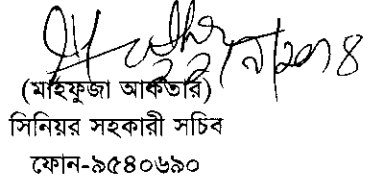 ২২/৭/২০১৪
(মাহফুজা আকতার)
সিনিয়র সহকারী সচিব
ফোন-৯৫৪০৬৯০